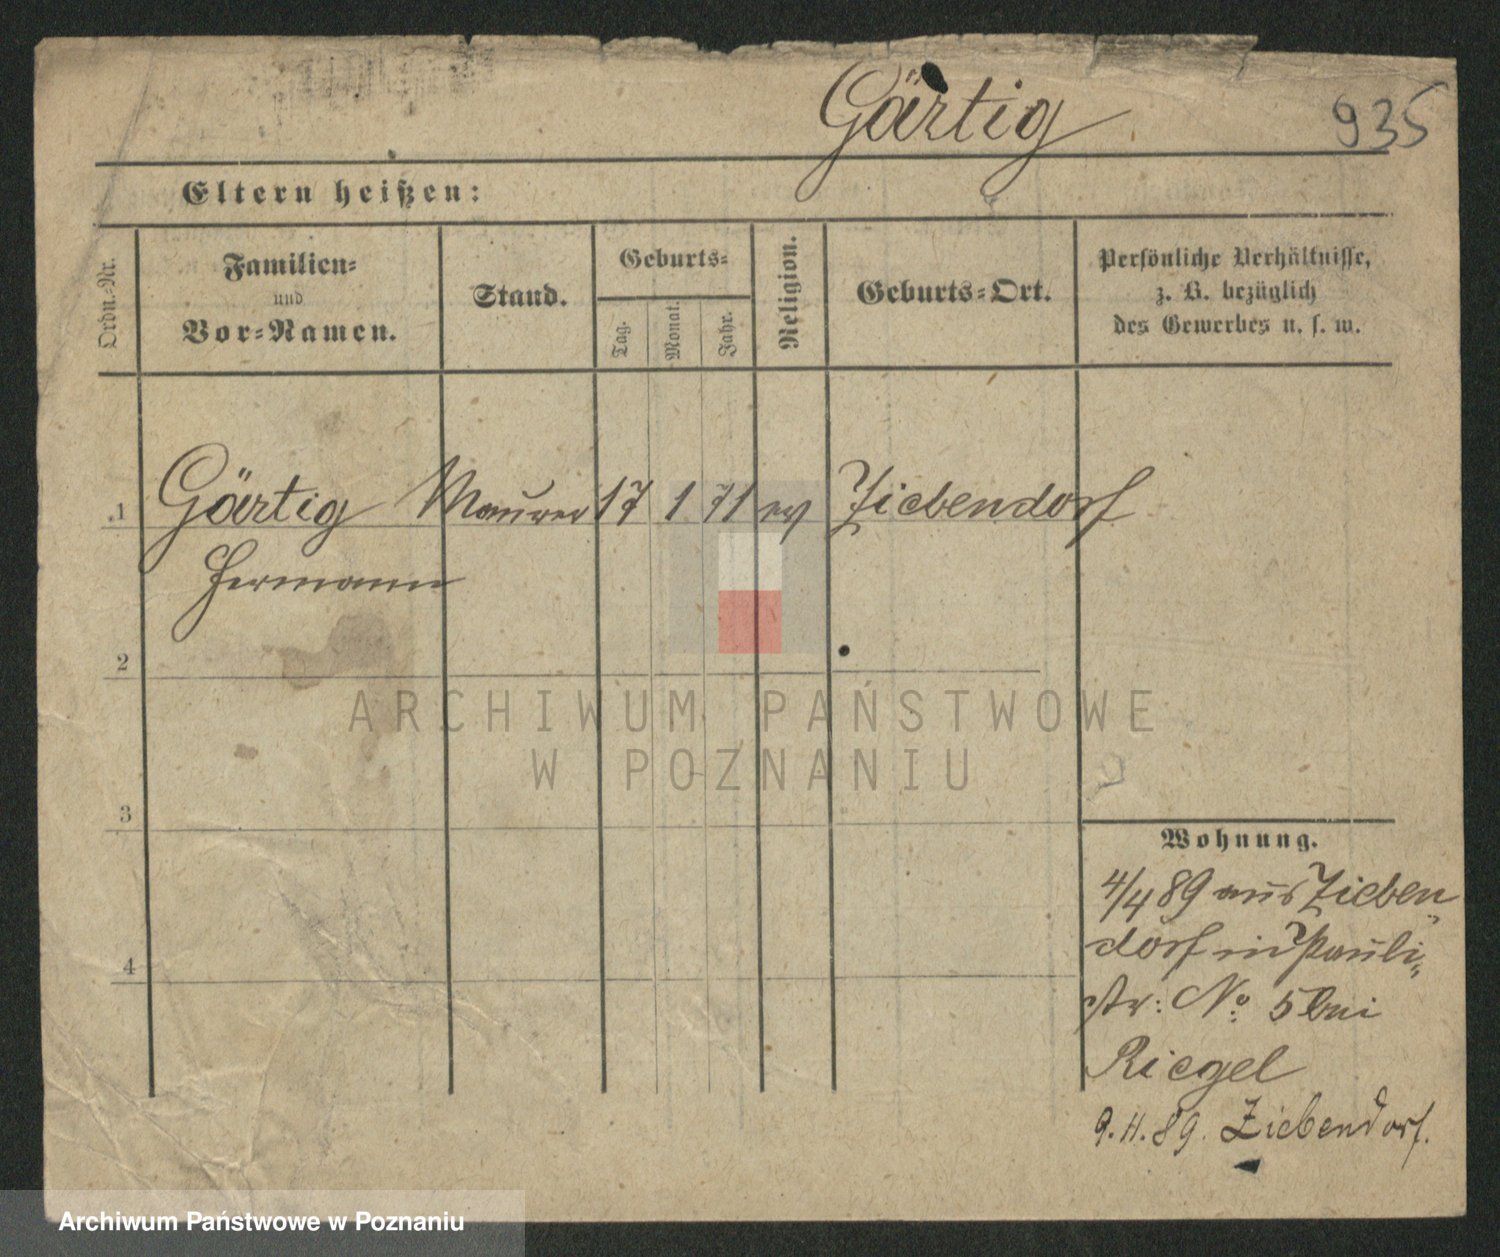 Gärtig
935
Eltern heißen:
Ordn.-Nr.
Familien-
und
Vor-Namen.
Stand.
Geburts-
Tag.
Monat.
Jahr.
Religion.
Geburts-Ort.
Persönliche Verhältnisse,
z. B. bezüglich
des Gewerbes u. s. w.
1 Gärtig Maurer 17 1 71 ev Ziebendorf
Hermann
2
ARCHIWUM PAŃSTWOWE
W POZNANIU
3
Wohnung.
4/4 89 aus Zieben
dorf in Pauli-
str: No 5 bei
4
Riegel
9.11.89. Ziebendorf.
Archiwum Państwowe w Poznaniu